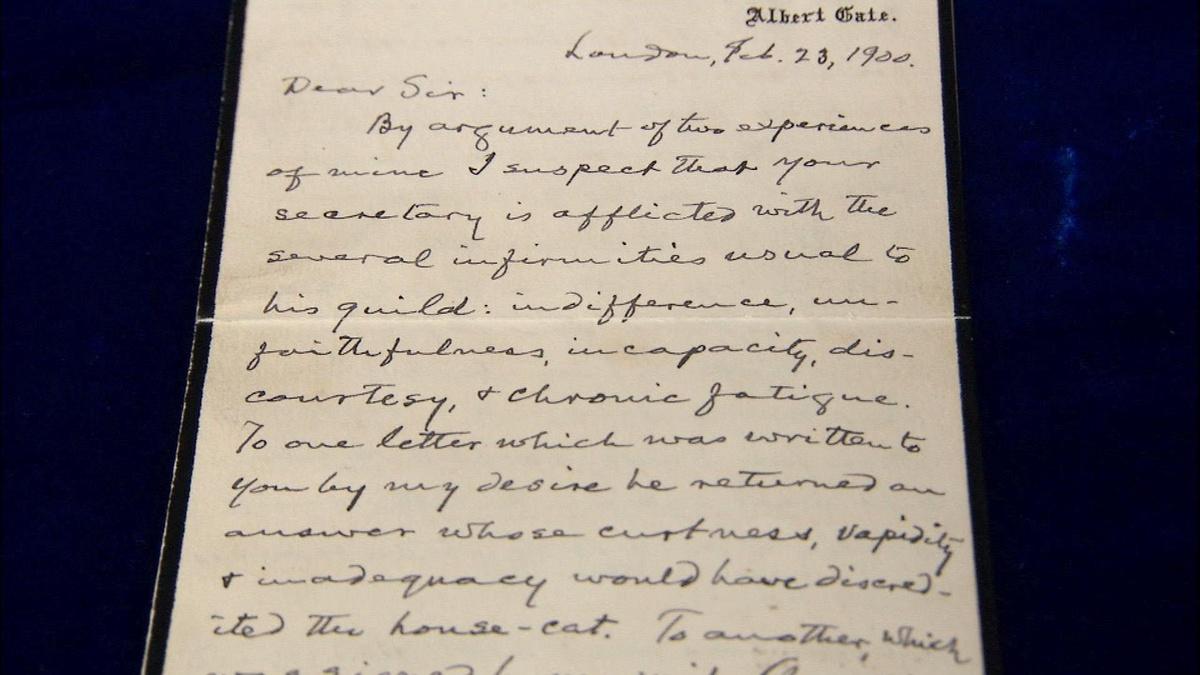 Albert Gate.
London, Feb. 23, 1900.
Dear Sir:
By argument of two experiences
of mine I suspect that your
secretary is afflicted with the
several infirmities usual to
his guild: indifference, un-
faithfulness, incapacity, dis-
courtesy, & chronic fatigue.
To one letter which was written to
you by my desire he returned an
answer whose curtness, vapidity
& inadequacy would have discred-
ited the house-cat. To another, which